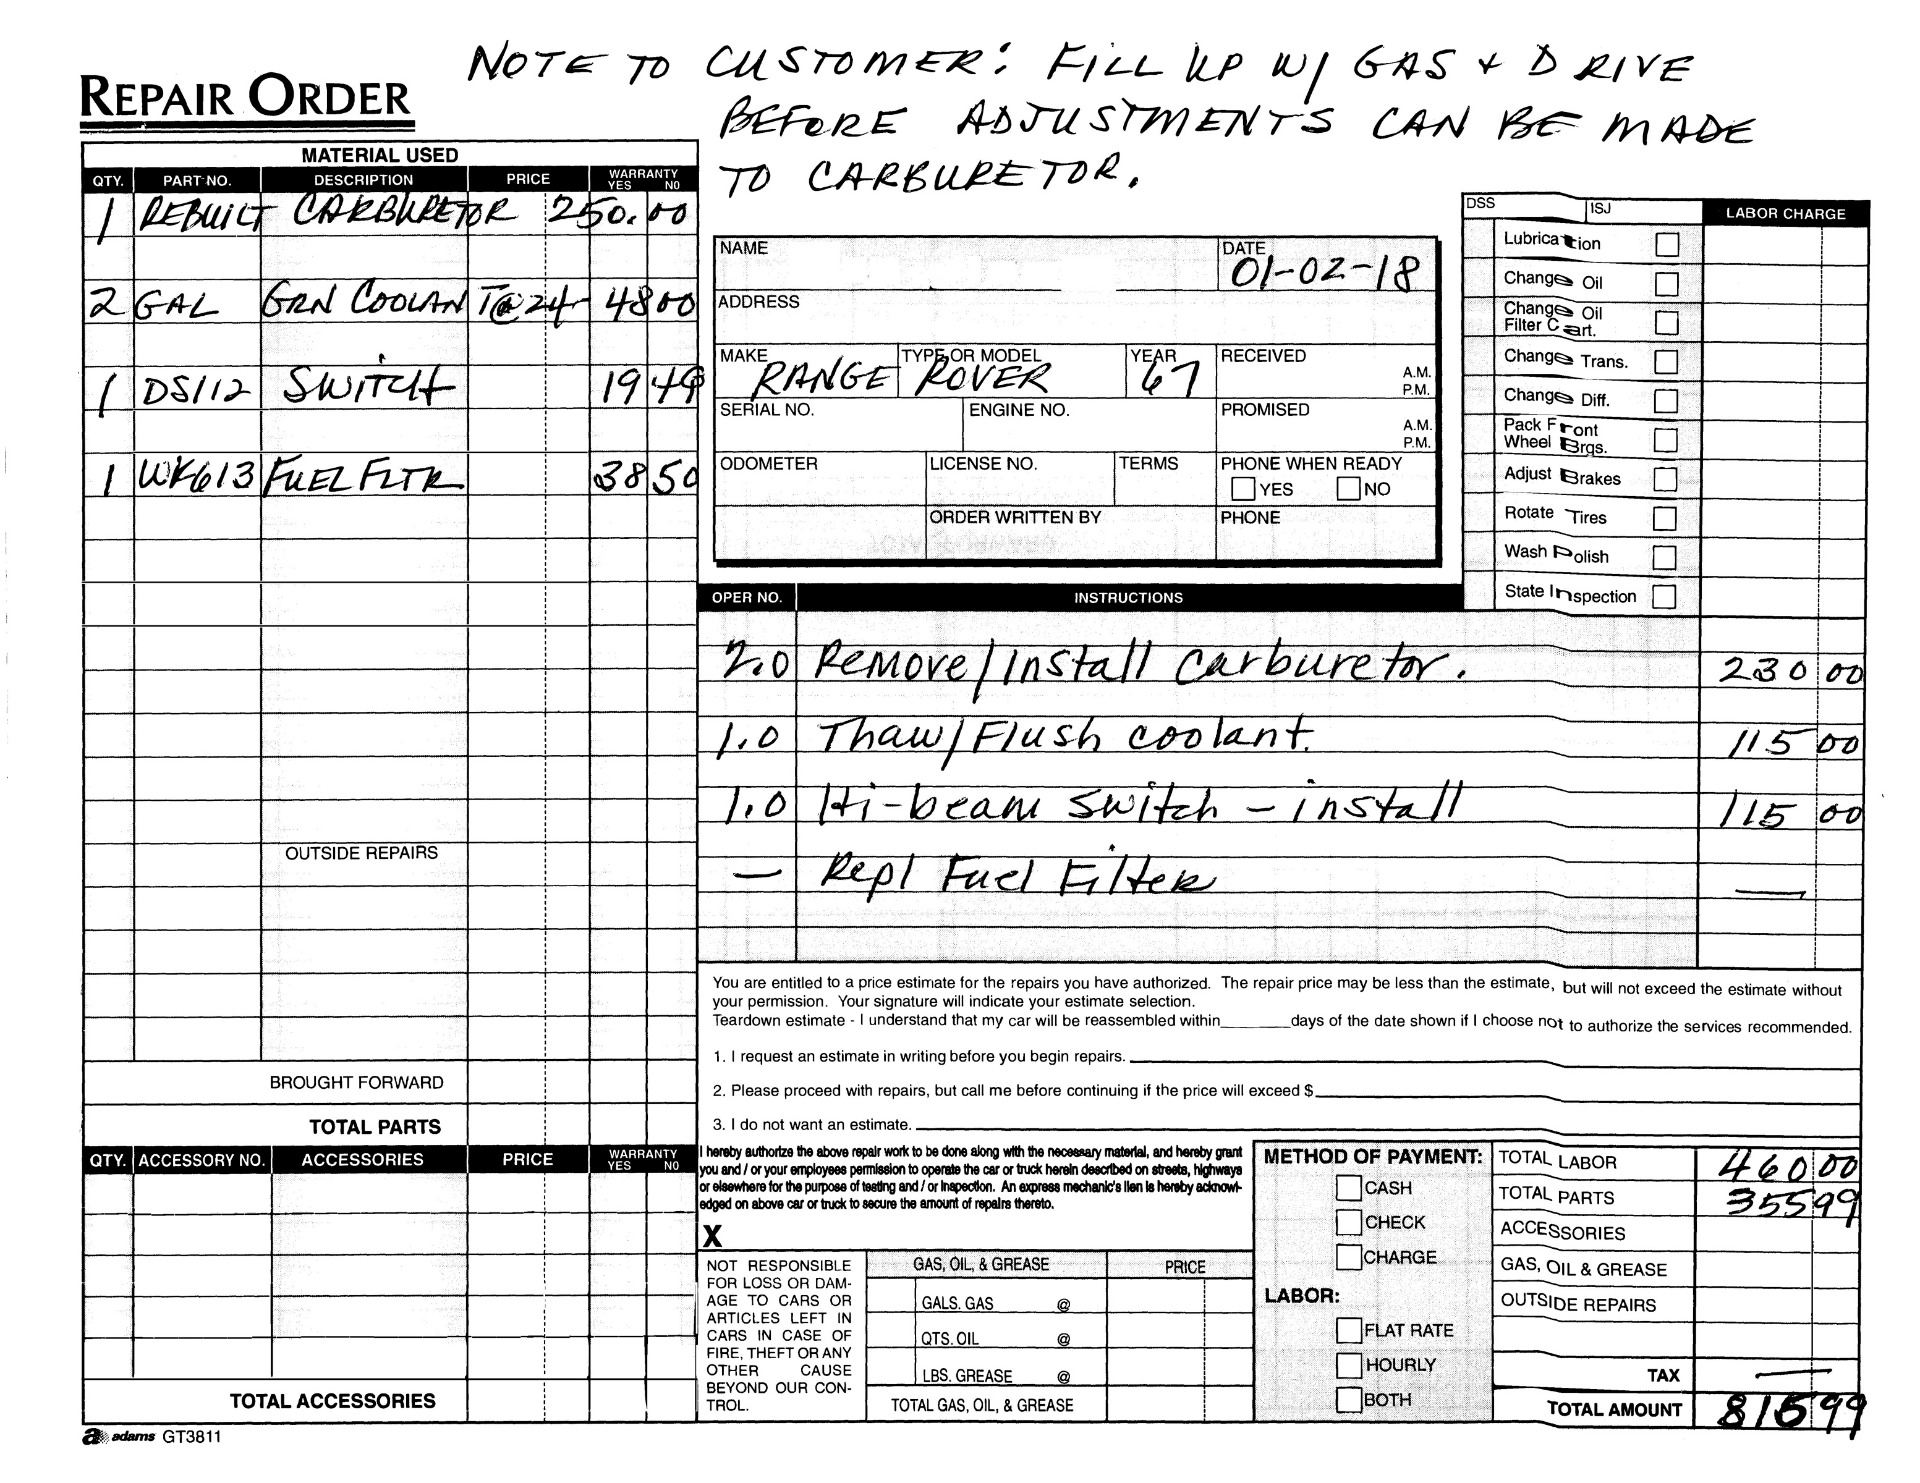 NOTE TO CUSTOMER: FILL UP W/ GAS + DRIVE
BEFORE ADJUSTMENTS CAN BE MADE
TO CARBURETOR.
REPAIR ORDER
MATERIAL USED
QTY. PART NO. DESCRIPTION PRICE WARRANTY YES NO
1 REBUILT CARBURETOR 250.00
2 GAL GRN COOLANT @ 24- 48 00
1 DS112 SWITCH 19 49
1 WK613 FUEL FLTR 38 50
OUTSIDE REPAIRS
BROUGHT FORWARD
TOTAL PARTS
QTY. ACCESSORY NO. ACCESSORIES PRICE WARRANTY YES NO
TOTAL ACCESSORIES
adams GT3811
NAME DATE
01-02-18
ADDRESS
MAKE TYPE OR MODEL YEAR RECEIVED
RANGE ROVER 67 A.M.
P.M.
SERIAL NO. ENGINE NO. PROMISED
A.M.
P.M.
ODOMETER LICENSE NO. TERMS PHONE WHEN READY
YES NO
ORDER WRITTEN BY PHONE
DSS ISJ LABOR CHARGE
Lubrication
Change Oil
Change Oil
Filter Cart.
Change Trans.
Change Diff.
Pack Front
Wheel Brgs.
Adjust Brakes
Rotate Tires
Wash Polish
State Inspection
OPER NO. INSTRUCTIONS
2.0 Remove/Install carburetor. 230 00
1.0 Thaw/Flush coolant. 115 00
1.0 Hi-beam switch - install 115 00
— Repl Fuel Filter —
You are entitled to a price estimate for the repairs you have authorized. The repair price may be less than the estimate, but will not exceed the estimate without
your permission. Your signature will indicate your estimate selection.
Teardown estimate - I understand that my car will be reassembled within_______days of the date shown if I choose not to authorize the services recommended.
1. I request an estimate in writing before you begin repairs.
2. Please proceed with repairs, but call me before continuing if the price will exceed $
3. I do not want an estimate.
I hereby authorize the above repair work to be done along with the necessary material, and hereby grant
you and / or your employees permission to operate the car or truck herein described on streets, highways
or elsewhere for the purpose of testing and / or inspection. An express mechanic's lien is hereby acknowl-
edged on above car or truck to secure the amount of repairs thereto.
X
NOT RESPONSIBLE
FOR LOSS OR DAM-
AGE TO CARS OR
ARTICLES LEFT IN
CARS IN CASE OF
FIRE, THEFT OR ANY
OTHER CAUSE
BEYOND OUR CON-
TROL.
GAS, OIL, & GREASE PRICE
GALS. GAS @
QTS. OIL @
LBS. GREASE @
TOTAL GAS, OIL, & GREASE
METHOD OF PAYMENT:
CASH
CHECK
CHARGE
LABOR:
FLAT RATE
HOURLY
BOTH
TOTAL LABOR 460 00
TOTAL PARTS 355 99
ACCESSORIES
GAS, OIL & GREASE
OUTSIDE REPAIRS
TAX —
TOTAL AMOUNT 815 99